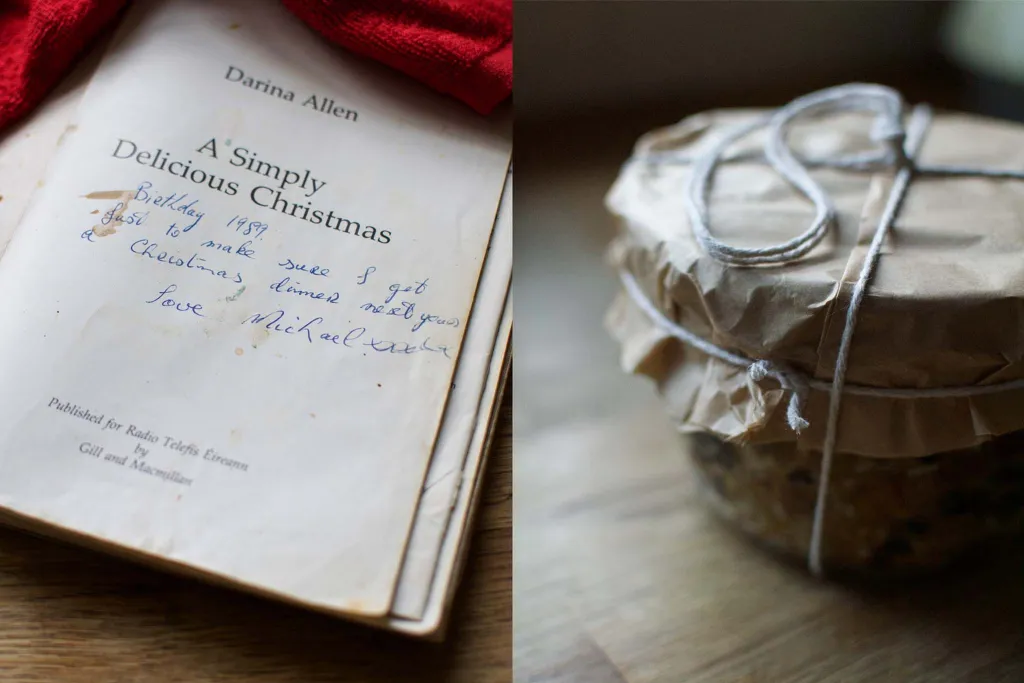 Darina Allen
A Simply
Delicious Christmas
Birthday 1989.
Just to make sure I get
a Christmas dinner next year
Love Michael xxxxx
Published for Radio Telefís Éireann
by
Gill and Macmillan